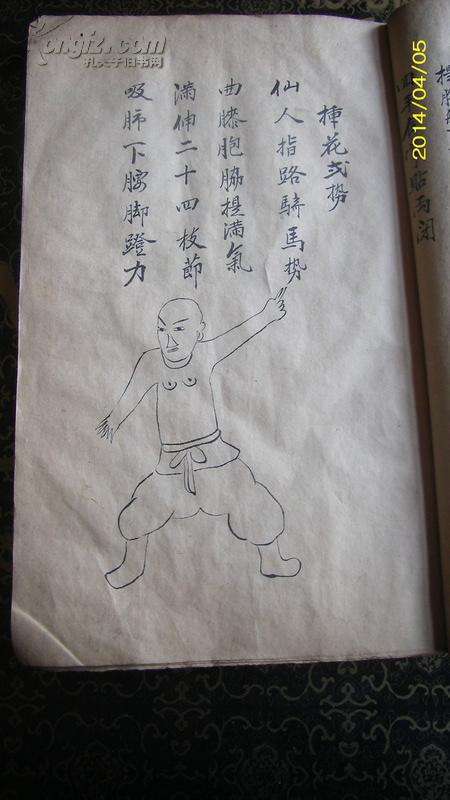 挿花式势
仙人指路騎馬势
曲膝胞脇提满氣
满伸二十四枝節
吸肺下腰脚蹬力
贴两闭
2014/04/05
kongfz.com
孔夫子旧书网